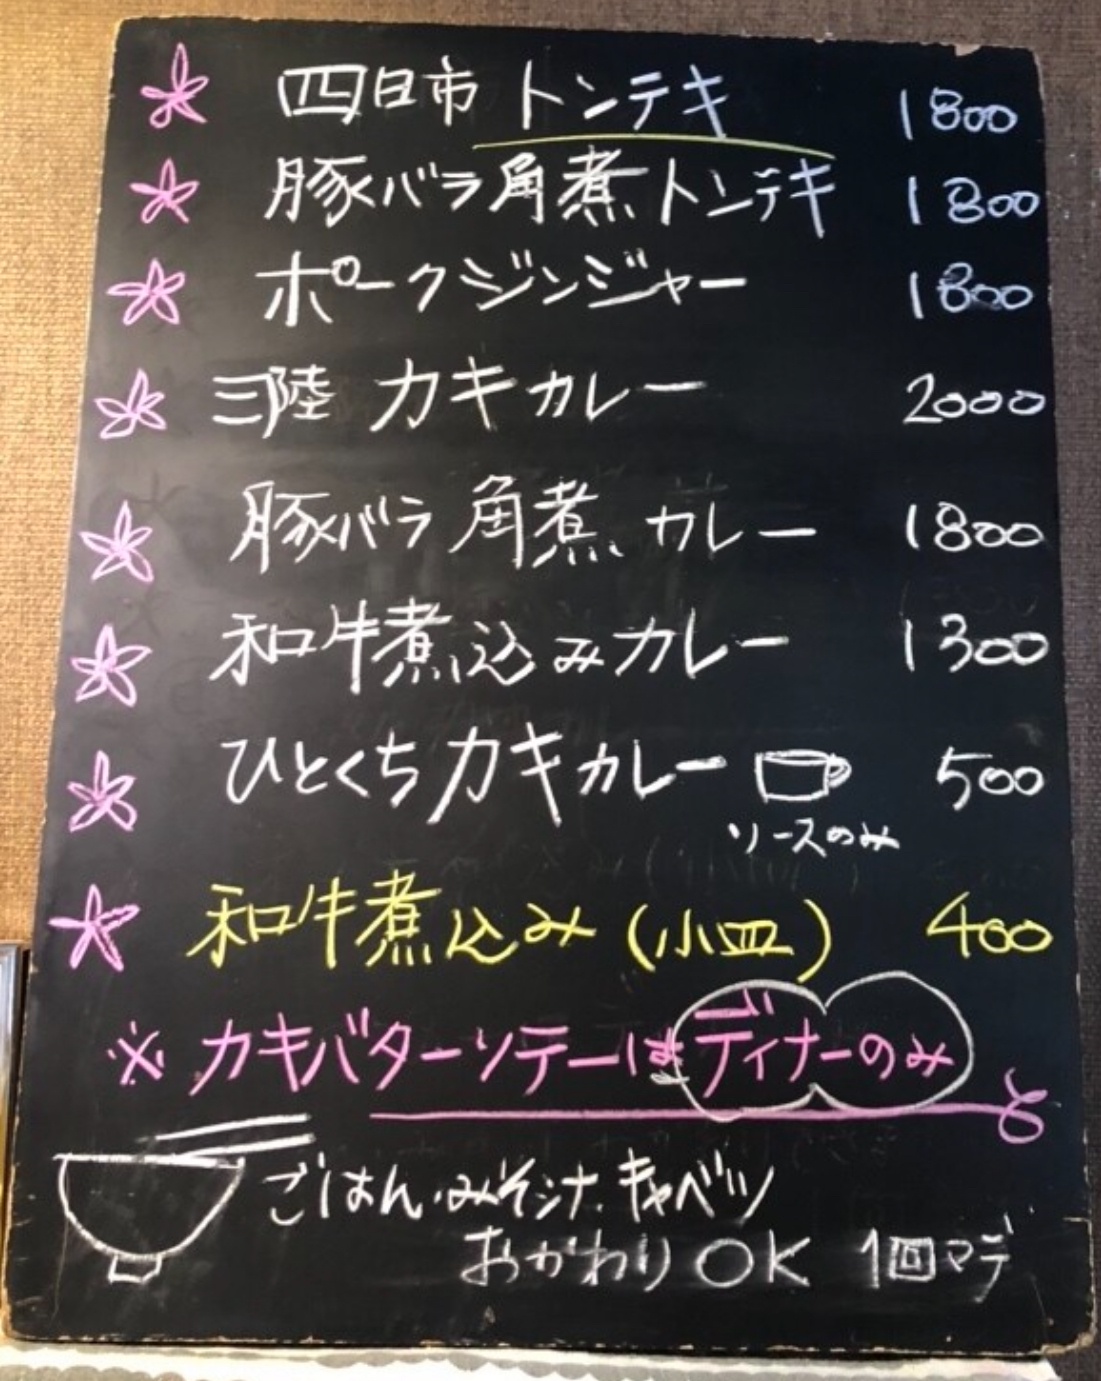 四日市 トンテキ 1800
豚バラ角煮トンテキ 1800
ポークジンジャー 1800
三陸 カキカレー 2000
豚バラ 角煮 カレー 1800
和牛煮込みカレー 1300
ひとくちカキカレー 500
ソースのみ
和牛煮込み(小皿) 400
※カキバターソテーはディナーのみ
ごはん・みそシナ・キャベツ
おかわりOK 1回マデ